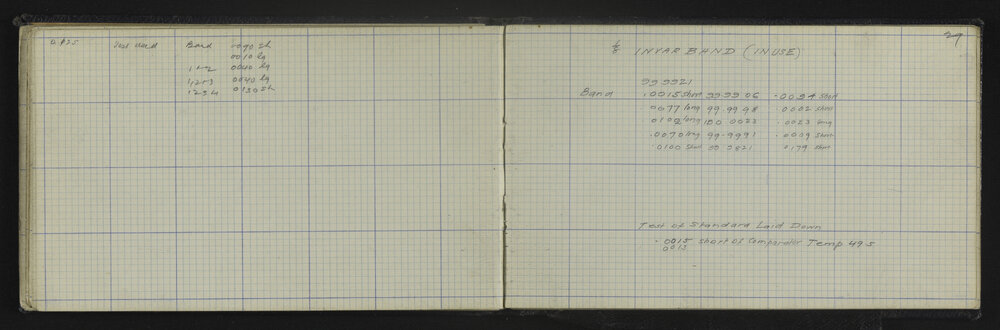 Band 0090 sh
0010 lg
1+2 0040 lg
1,2+3 0040 lg
1234 0130 sh
29
INVAR BAND (IN USE)
999921
Band .0015 short 99 99 06 -0094 short
0077 long 99.99 98 .0002 short
0102 long 100 0023 .0023 long
.0070 long 99-9991 .0009 short
.0100 short 99 9821 0179 short
Test of Standard Laid Down
- 0015 short of Comparator Temp 49.5
0013